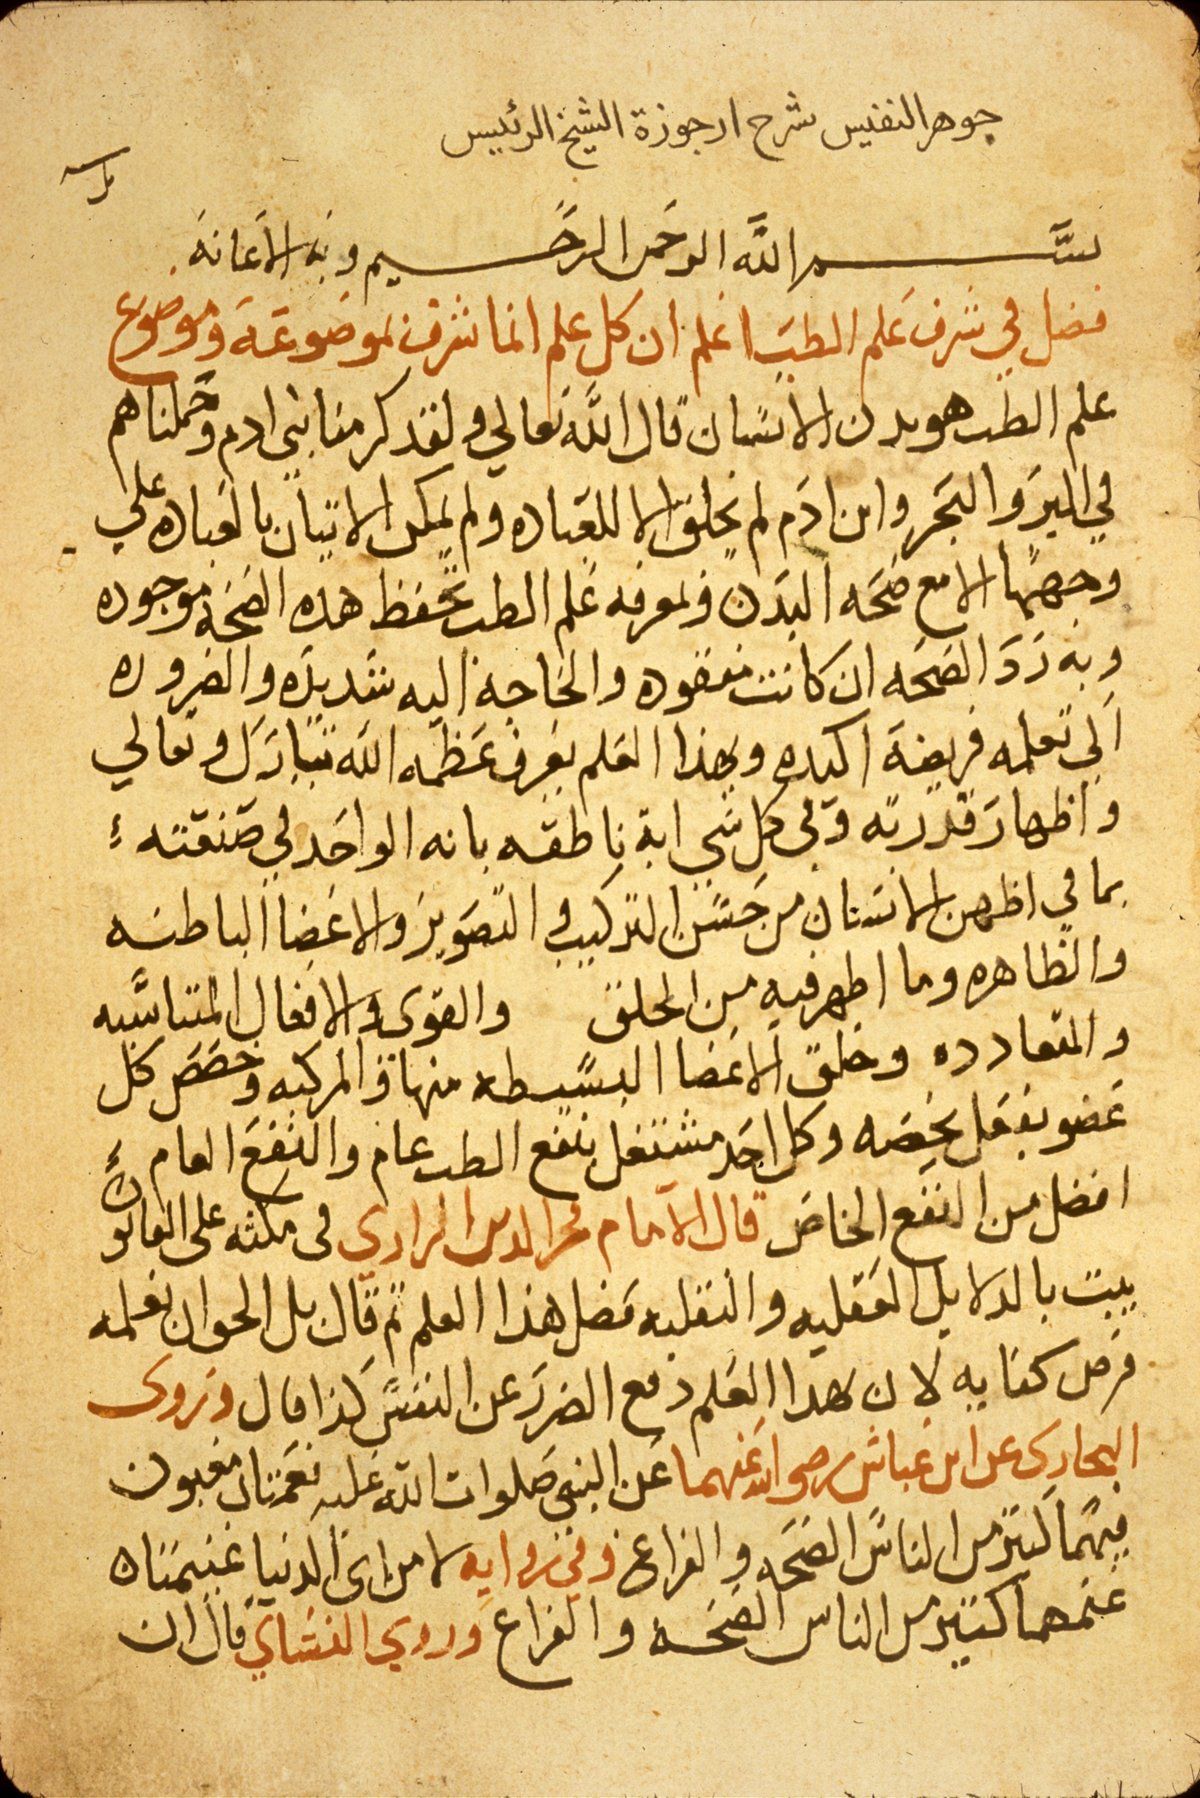 جوهر النفيس شرح ارجوزة الشيخ الرئيس
بسم الله الرحمن الرحيم وبه الاعانة
فصل في شرف علم الطب اعلم ان كل علم انما شرف بموضوعه وموضوع
علم الطب هو بدن الانسان قال الله تعالي ولقد كرمنا بني ادم وحملناهم
في البر والبحر وابن ادم لم يخلق الا للعباده ولم يمكن الاتيان بالعباده علي
وجهها الا مع صحه البدن فبمعرفه علم الطب تحفظ هذه الصحة موجوده
وبه ترد الصحه ان كانت مفقوده والحاجة اليه شديده والضروره
الي تعلمه فريضة اكيده وبهذا العلم يعرف عظمه الله تبارك وتعالي
واظهار قدرته وفي كل شي اية ناطقه بانه الواحد في صنعته
بما في اظهر الانسان من حسن التركيب والتصوير والاعضا الباطنه
والظاهره وما اظهر فيه من الخلق والقوى والافعال المتناسبه
والمتعادده وخلق الاعضا البسيطه منها والمركبه وخصص كل
عضو بفعل يخصه وكل احد مشتغل بنفع الطب عام والنفع العام
افضل من النفع الخاص قال الامام فخر الدين الرازي في على القانون
يبت بالدلايل العقليه والنقليه فضل هذا العلم ثم قال بل الحق ان تعلمه
فرض كفايه لان بهذا العلم دفع الضرر عن النفس كذا قال وروى
البخاري عن ابن عباس رضي الله عنهما عن النبي صلوات الله عليه نعمتان مغبون
فيهما كثير من الناس الصحه والفراغ وفي روايه الا من اتى الدنيا غنيمتاه
غنمهما كثير من الناس الصحه والفراغ وروي النسائي قال ان